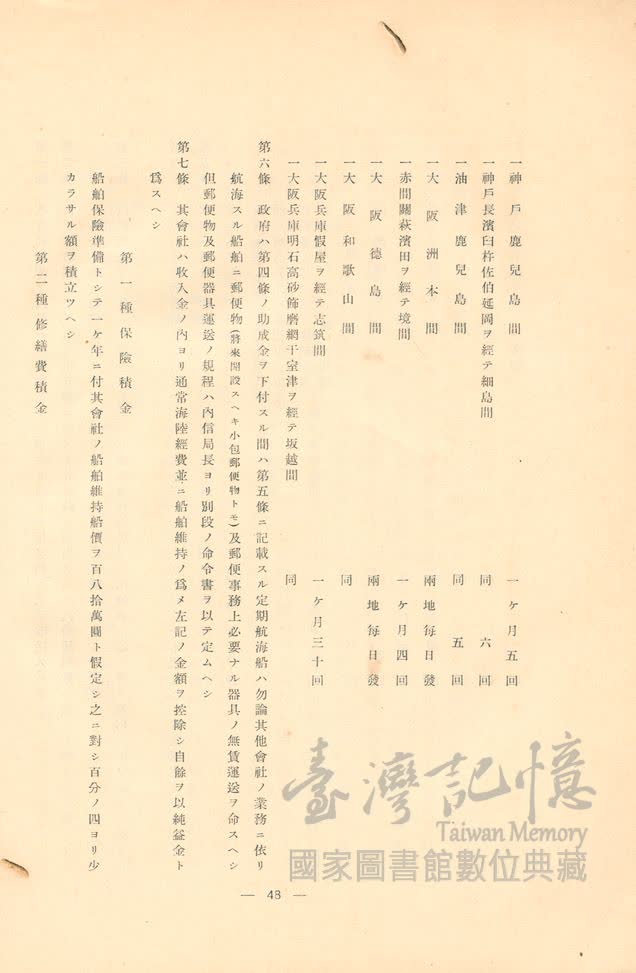 一神戶鹿兒島間 一ケ月五回
一神戶長濱臼杵佐伯延岡ヲ經テ細島間 同六回
一油津鹿兒島間 同五回
一大阪洲本間 兩地每日發
一赤間關萩濱田ヲ經テ境間 一ケ月四回
一大阪德島間 兩地每日發
一大阪和歌山間 同
一大阪兵庫假屋ヲ經テ志筑間 一ケ月三十回
一大阪兵庫明石高砂飾磨網干室津ヲ經テ坂越間 同
第六條 政府ハ第四條ノ助成金ヲ下付スル間ハ第五條ニ記載スル定期航海船ハ勿論其他會社ノ業務ニ依リ
航海スル船舶ニ郵便物(將來開設スヘキ小包郵便物トモ)及郵便事務上必要ナル器具ノ無賃運送ヲ命スヘシ
但郵便物及郵便器具運送ノ規程ハ內信局長ヨリ別段ノ命令書ヲ以テ定ムヘシ
第七條 其會社ハ收入金ノ內ヨリ通常海陸經費並ニ船舶維持ノ爲メ左記ノ金額ヲ控除シ自餘ヲ以純益金ト
爲スヘシ
第一種保險積金
船舶保險準備トシテ一ケ年ニ付其會社ノ船舶維持船價ヲ百八拾萬圓ト假定シ之ニ對シ百分ノ四ヨリ少
カラサル額ヲ積立ツヘシ
第二種修繕費積金
— 48 —
臺灣記憶
Taiwan Memory
國家圖書館數位典藏